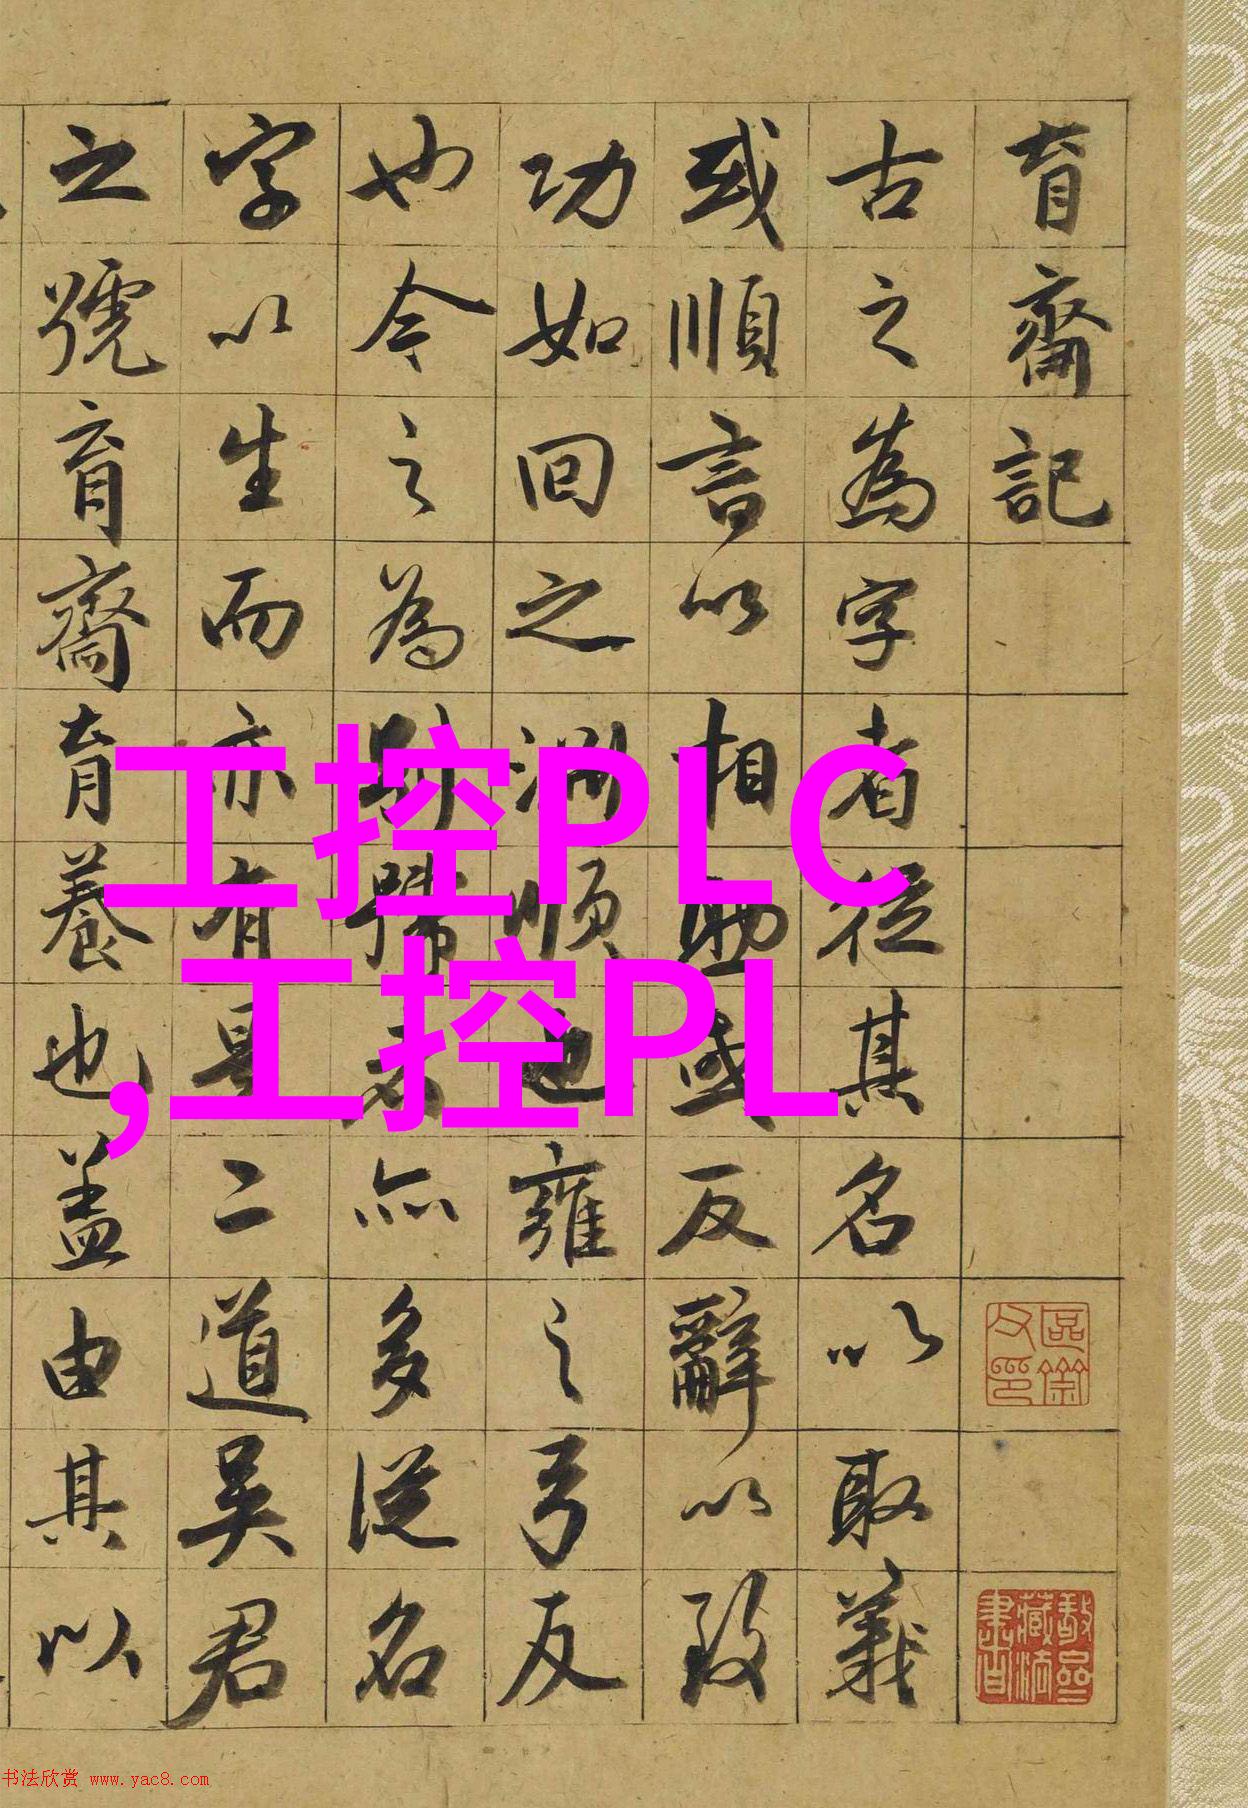 育齋記
古之為字者從其名以取義
或順言以相勗或反辭以致
功如回之淵順也雍之弓反
也今之為別號者亦多從名
字以生而亦有是二道吳君
之號育齋育養也蓋由其以
工控PLC
,工控PL
书法欣赏 www.yac8.com